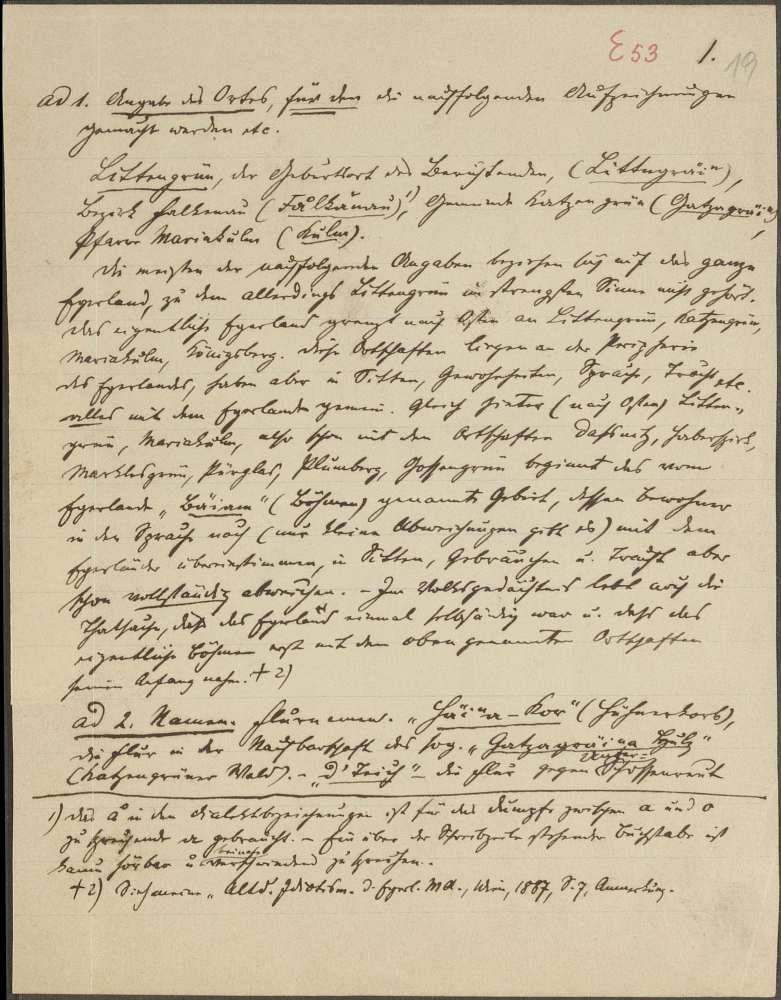 E 53 1. 19
ad 1. Angabe des Ortes, für den die nachfolgenden Aufzeichnungen
gemacht werden etc.
Littengrün, der Geburtsort des Berichtenden, (Littngräiⁿ),
Bezirk Falkenau (Fålkänau)¹⁾, Gemeinde Katzengrün (Gatzagräiⁿ),
Pfarre Mariakulm (Kulm).
Die meisten der nachfolgenden Angaben beziehen sich auf das ganze
Egerland, zu dem allerdings Littengrün im strengsten Sinne nicht gehört.
Das eigentliche Egerland grenzt nach Osten an Littengrün, Katzengrün,
Mariakulm, Königsberg. Diese Ortschaften liegen an der Peripherie
des Egerlandes, haben aber in Sitten, Gewohnheiten, Sprache, Tracht etc.
alles mit dem Egerlande gemein. Gleich hinter (nach Osten) Litten-
grün, Mariakulm, also schon mit den Ortschaften Daßnitz, Haberspirk,
Marklesgrün, Pürglas, Plumberg, Gossengrün beginnt das vom
Egerlande „Bäiam" (Böhmen) genannte Gebiet, dessen Bewohner
in der Sprache noch (nur kleine Abweichungen gibt es) mit dem
Egerländer übereinstimmen, in Sitten, Gebräuchen u. Tracht aber
schon vollständig abweichen. – Im Volksgedächtnis lebt auch die
Thatsache, daß das Egerland einmal selbständig war u. daß das
eigentliche Böhmen erst mit den oben genannten Ortschaften
seinen Anfang nahm. + 2)
ad 2. Namen. Flurnamen. „Häiⁿa-Kor" (Hühnerkorb),
die Flur in der Nachbarschaft des sog. „Gatzagräina Hulz"
(Katzengrüner Wald). – „d' Teich" – die Flur gegen Unter-
Schossenreut
1) das å in den Dialektbezeichnungen ist für das dumpfe zwischen a und o
zu sprechende a gebraucht. – Ein über der Schreibzeile stehender Buchstabe ist
kaum hörbar u. beinahe verschwindend zu sprechen. –
+ 2) Sieh meine „Altd. Idiotism. d. Egerl. Ma., Wien, 1887, S. 7, Anmerkung.